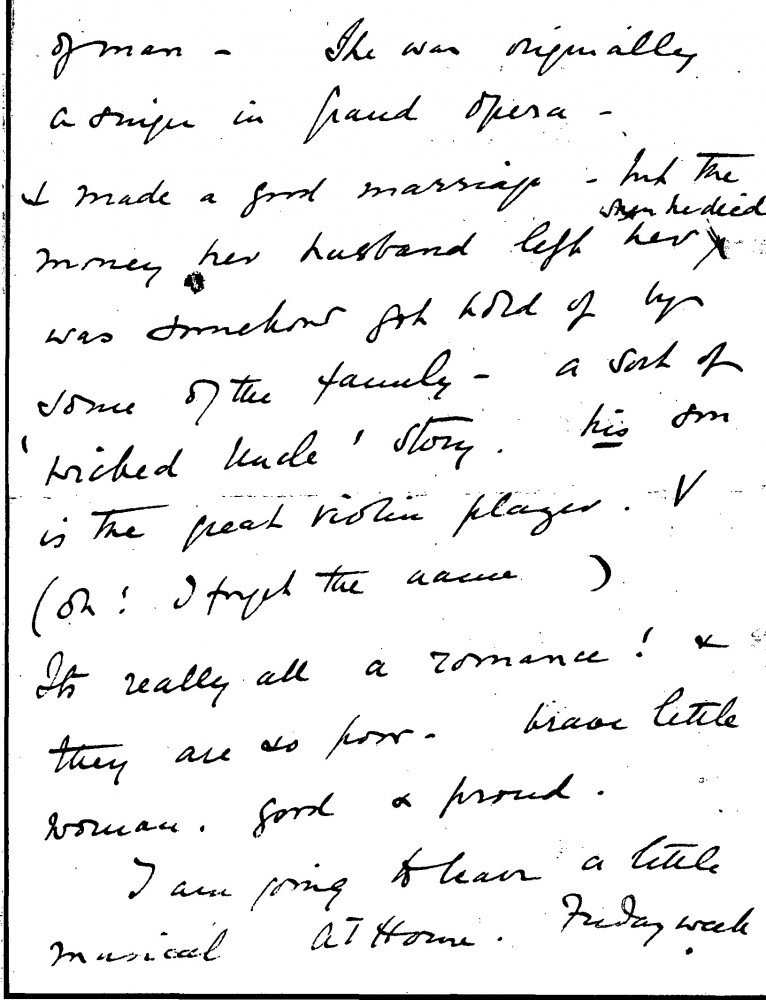 of man - She was originally
a singer in grand opera -
& made a good marriage - but the
when he died
money her husband left her
was somehow got hold of by
some of the family - a sort of
'wicked Uncle' story. his son
is the great violin player. V
(Oh! I forget the name )
Its really all a romance! &
they are so poor - brave little
woman. good & proud.
I am going to have a little
musical At Home. Friday week